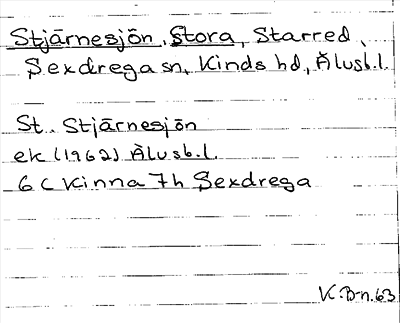 Stjärnesjön, Stora, Starred,
Sexdrega sn, Kinds hd, Älvsb.l.
St. Stjärnesjön
ek (1962) Älvsb.l.
6 C Kinna 7h Sexdrega
K.B-n.63